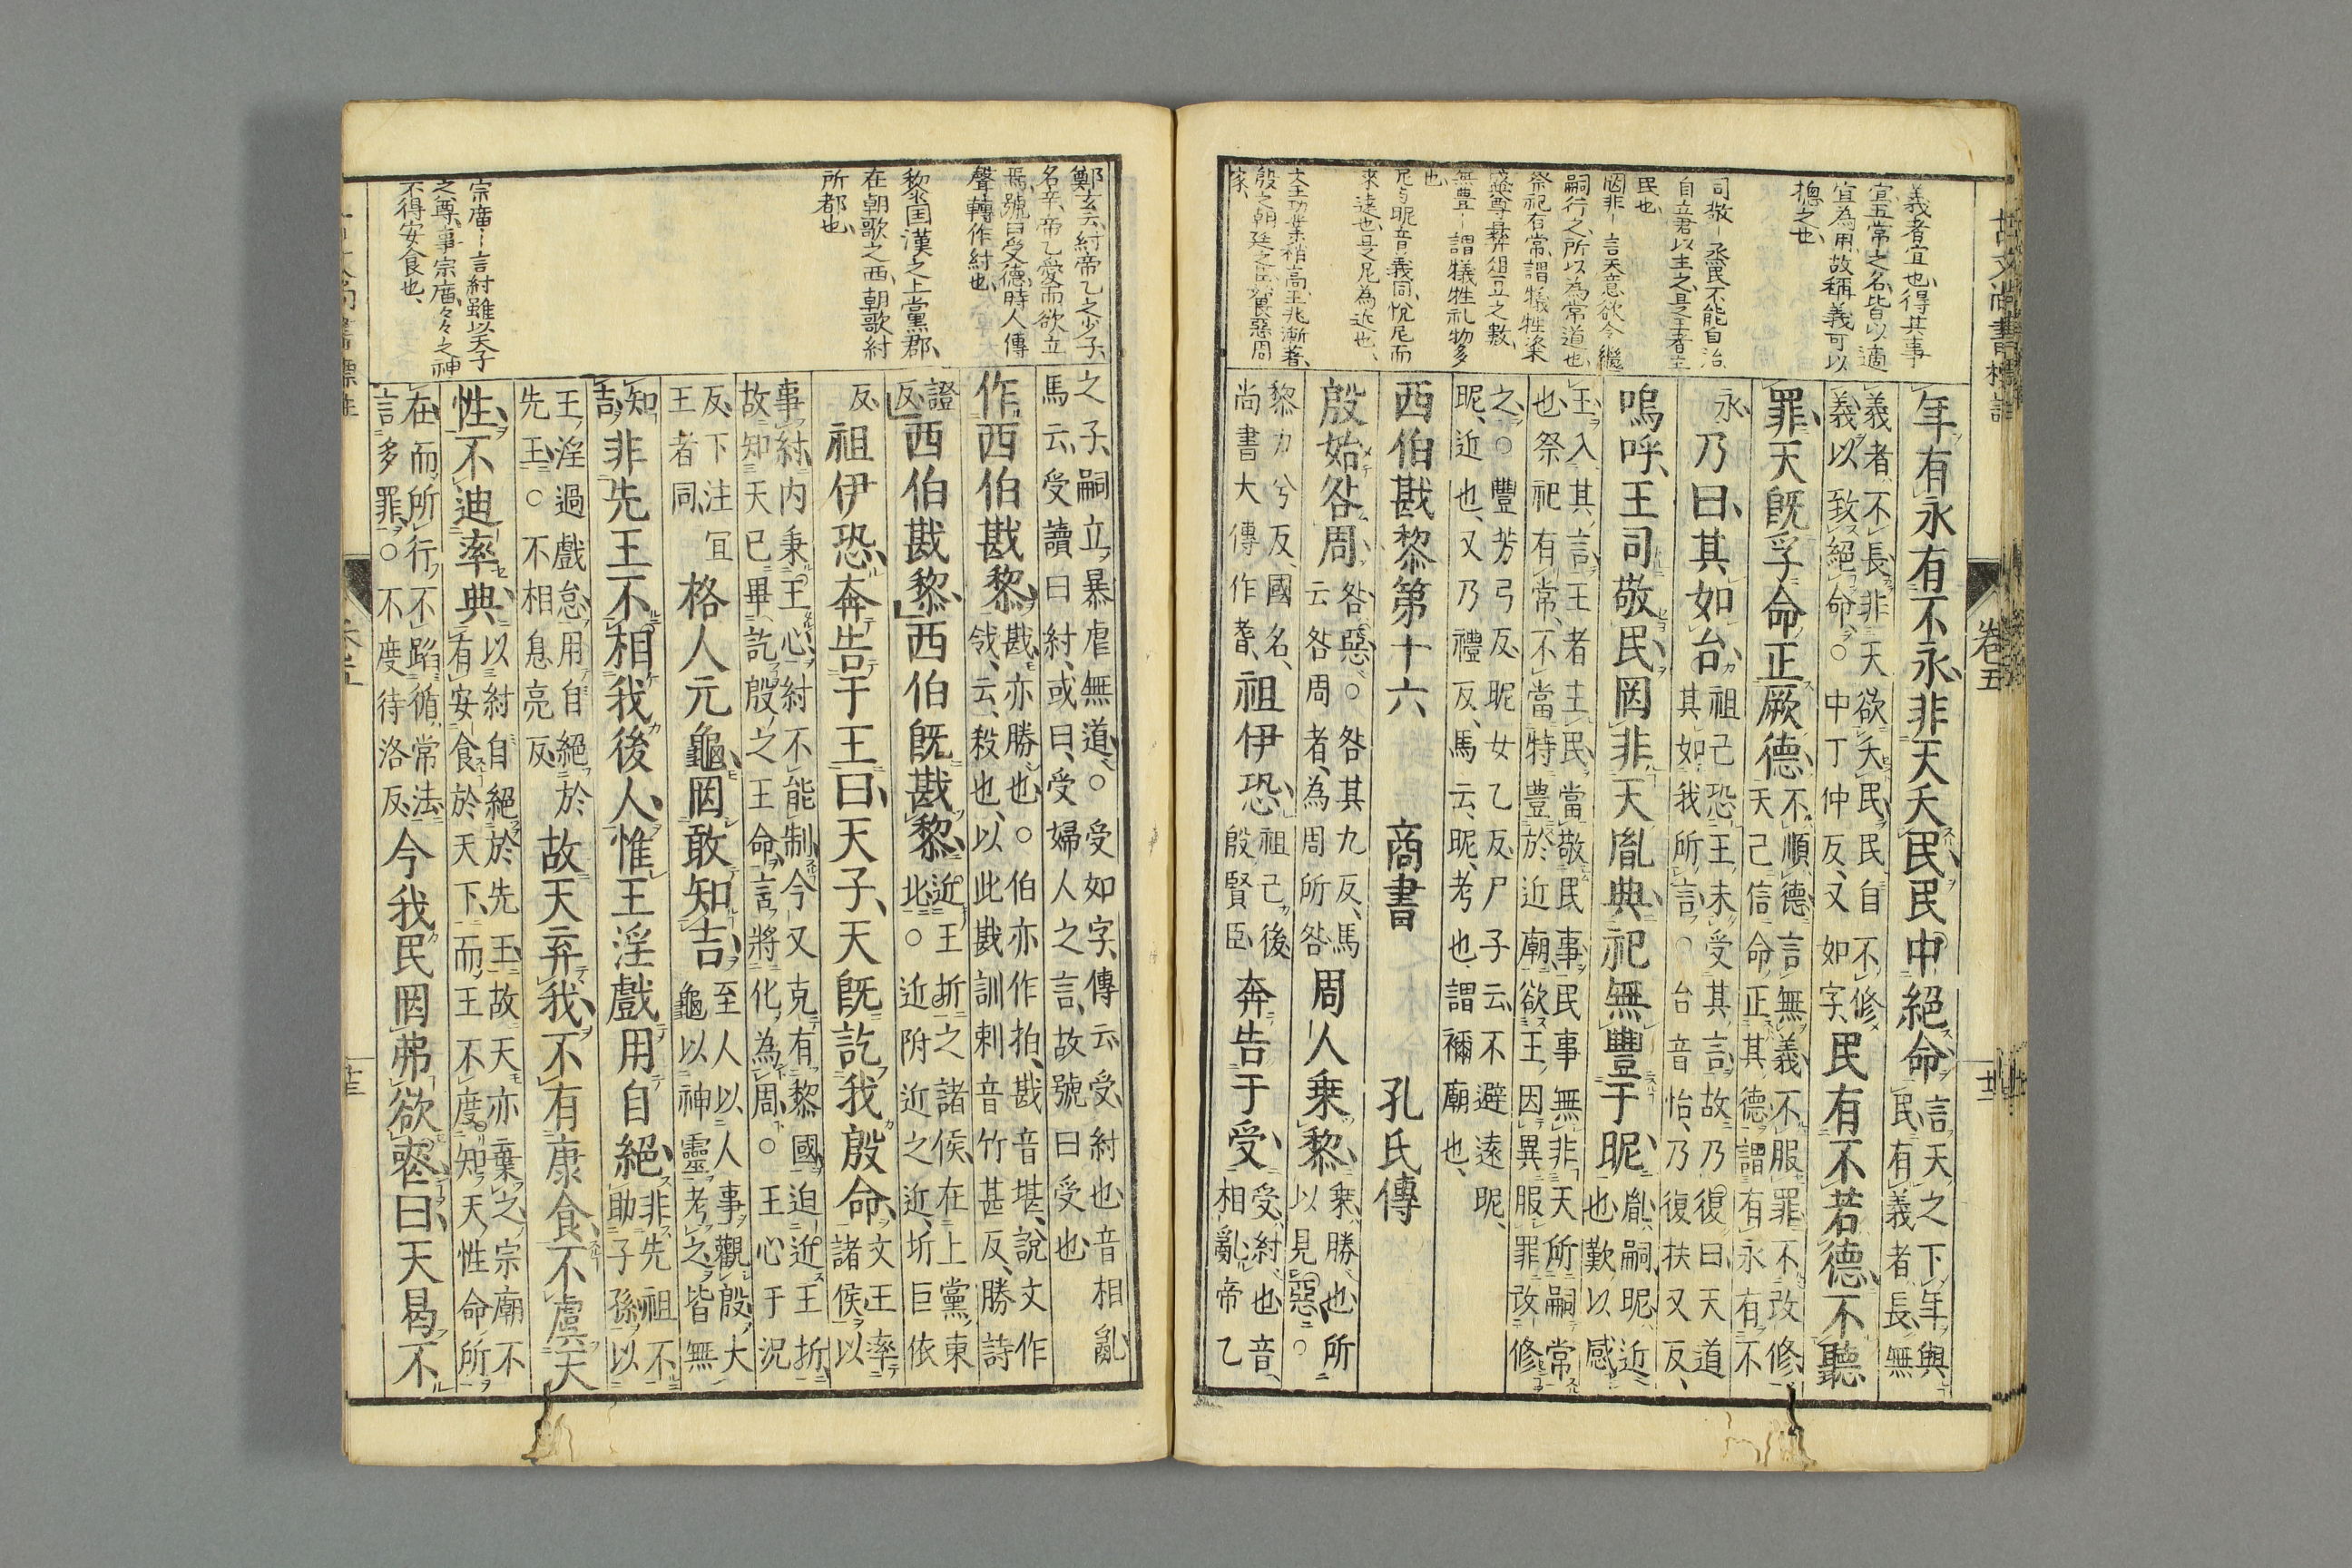 古文尚書標註
卷五
義者宜也、得其事
宜五常之名皆以適
宜為用、故稱義可以
摠之也、
司敬－烝民不能自治
自立君以主之、是王者主
民也
罔非－言天意欲令繼
嗣行之、所以為常道也、
祭祀有常、謂犧牲粢
盛尊彝俎豆之數、
無豊－謂犧牲礼物多
也、
尼与昵音義同、悅尼而
來遠也、是尼為近也、
文王功業稍高、王兆漸著、
殷之朝廷之臣、畏惡周
家、
年有永有不永、非天夭民、民中絕命、言天之下年與
民有義者長、無
義者不長、非天欲夭民、民自不修
義以致絕命。中丁仲反、又如字、民有不若德、不聽
罪、天既孚命正厥德、不順德、言無義、不服罪、不改修、
天已信命正其德、謂有永有不
永、乃曰、其如台、祖己恐王未受其言、故乃復曰、天道
其如我所言。台音怡、乃復扶又反、
嗚呼、王司敬民、罔非天胤典、祀無豐于昵、胤嗣、昵近
也、歎以感
王入其言、王者主民、當敬民事、民事無非天所嗣常
也、祭祀有常、不當特豊於近廟、欲王因異服罪改修
之。豐芳弓反、昵女乙反、尸子云、不避遠昵、
昵、近也、又乃禮反、馬云、昵、考也、謂禰廟也、
西伯戡黎第十六　商書　孔氏傳
殷始咎周、咎惡。咎其九反、馬
云咎周者、為周所咎周人乘黎、乗勝也、所
以見惡。
黎力兮反、國名、
尚書大傳作耆、祖伊恐、祖己後
殷賢臣奔告于受、受、紂也、音
相亂、帝乙
鄭玄云、紂帝乙之少子、
名辛、帝乙愛而欲立
焉、號曰受德、時人傳
聲轉作紂也、
黎国漢之上黨郡、
在朝歌之西、朝歌紂
所都也、
宗廟－言紂雖以天子
之尊、事宗庿、々々之神
不得安食也、
之子、嗣立、暴虐無道。受如字、傳云、受、紂也、音相亂
馬云、受讀曰紂、或曰、受婦人之言、故號曰受也
作西伯戡黎、戡亦勝也。伯亦作拍、戡音堪、說文作
㦰、云、殺也、以此戡訓刺音竹甚反、勝詩
證
反西伯戡黎、西伯既戡黎、近王圻之諸侯、在上黨東
北。近附近之近、圻巨依
反祖伊恐、奔告于王曰、天子、天既訖我殷命、文王率
諸侯以
事紂、內秉王心、紂不能制、今又克有黎國、迫近王圻、
故知天已畢訖殷之王命、言將化為周。王心于況
反、下注宜
王者同、格人元龜、罔敢知吉、至人以人事觀殷、大
龜以神靈考之、皆無
知
吉非先王不相我後人、惟王淫戲用自絕、非先祖不
助子孫、以
王淫過戲怠、用自絕於
先王。不相息亮反故天弃我、不有康食、不虞天
性、不迪率典、以紂自絕於先王、故天亦棄之、宗廟不
有安食於天下、而王不度知天性命所
在、而所行不蹈循常法、
言多罪。不度待洛反今我民罔弗欲喪曰、天曷不